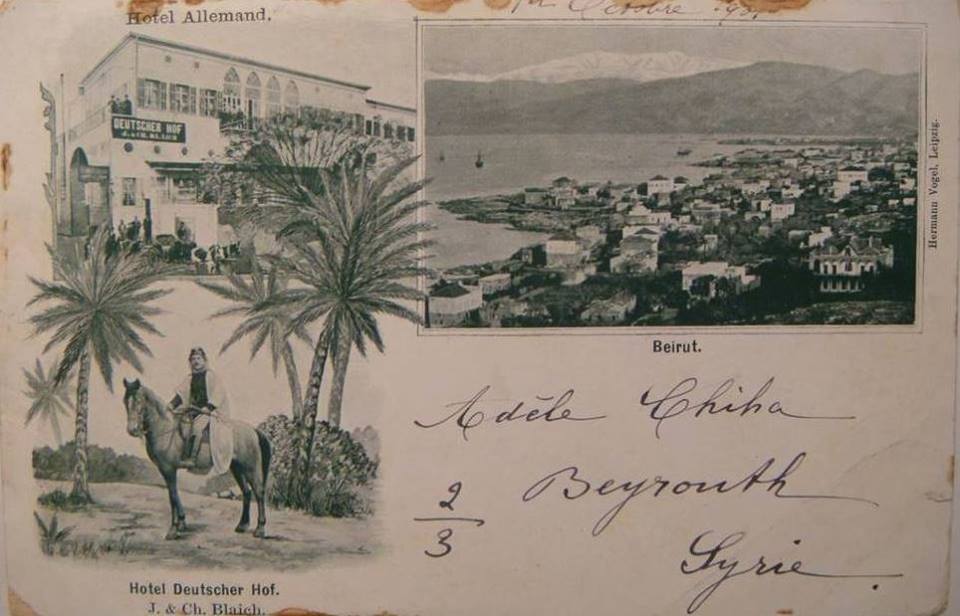 Hotel Allemand.
1er Octobre
DEUTSCHER HOF
J. & CH. BLAICH
Hermann Vogel, Leipzig.
Beirut.
Adèle Chiha
Beyrouth
2
3
Syrie
Hotel Deutscher Hof.
J. & Ch. Blaich.